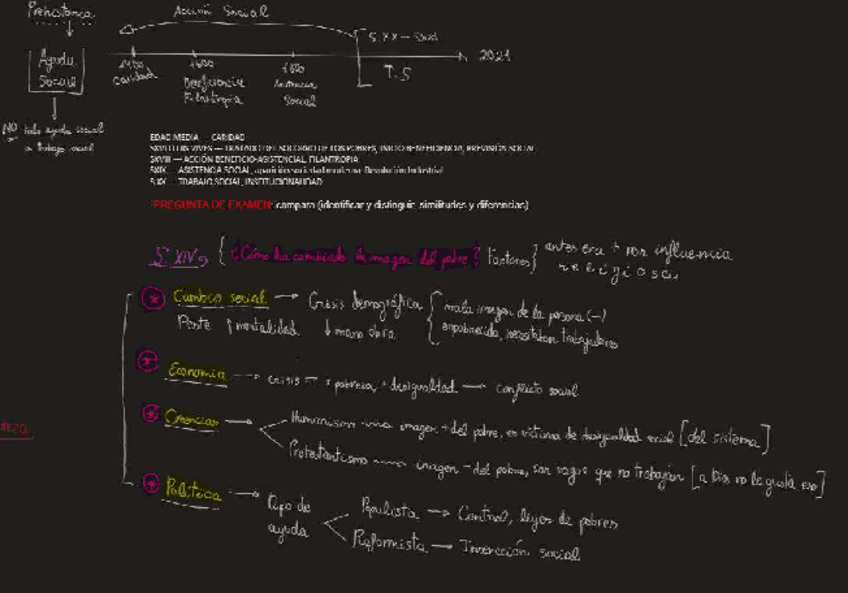 Prehistoria
Acción Social
S. XX - Soul
2021
Ayuda
Social
caridad
1600
Beneficencia
Filantropía
1800
Asistencia
Social
T.S
NO toda ayuda social
a trabajo social
EDAD MEDIA — CARIDAD
SXVI LUIS VIVES — TRATADO DEL SOCORRO DE LOS POBRES, INICIO BENEFICENCIA, PREVISIÓN SOCIAL
SXVIII — ACCIÓN BENEFICIO-ASISTENCIAL, FILANTROPIA
SXIX — ASISTENCIA SOCIAL, aparición sociedad moderna. Revolución Industrial
S.XX — TRABAJO SOCIAL, INSTITUCIONALIDAD
PREGUNTA DE EXAMEN: compara (identificar y distinguir, similitudes y diferencias)
S. XIV → { ¿Cómo ha cambiado la imagen del pobre? factores } antes era + por influencia
religiosa
* Cambio social → Crisis demográfica { mala imagen de la persona (-)
Peste ↑ mortalidad ↓ mano obra { empobrecida, necesitaban trabajadores
* Economía → crisis = + pobreza + desigualdad → conflicto social
* Creencias → Humanismo → imagen + del pobre, es víctima de desigualdad social [del sistema]
Protestantismo → imagen - del pobre, son vagos que no trabajan [a Dios no le gusta eso]
* Política → tipo de
ayuda
Populista → Control, leyes de pobres
Reformista → Inserción social